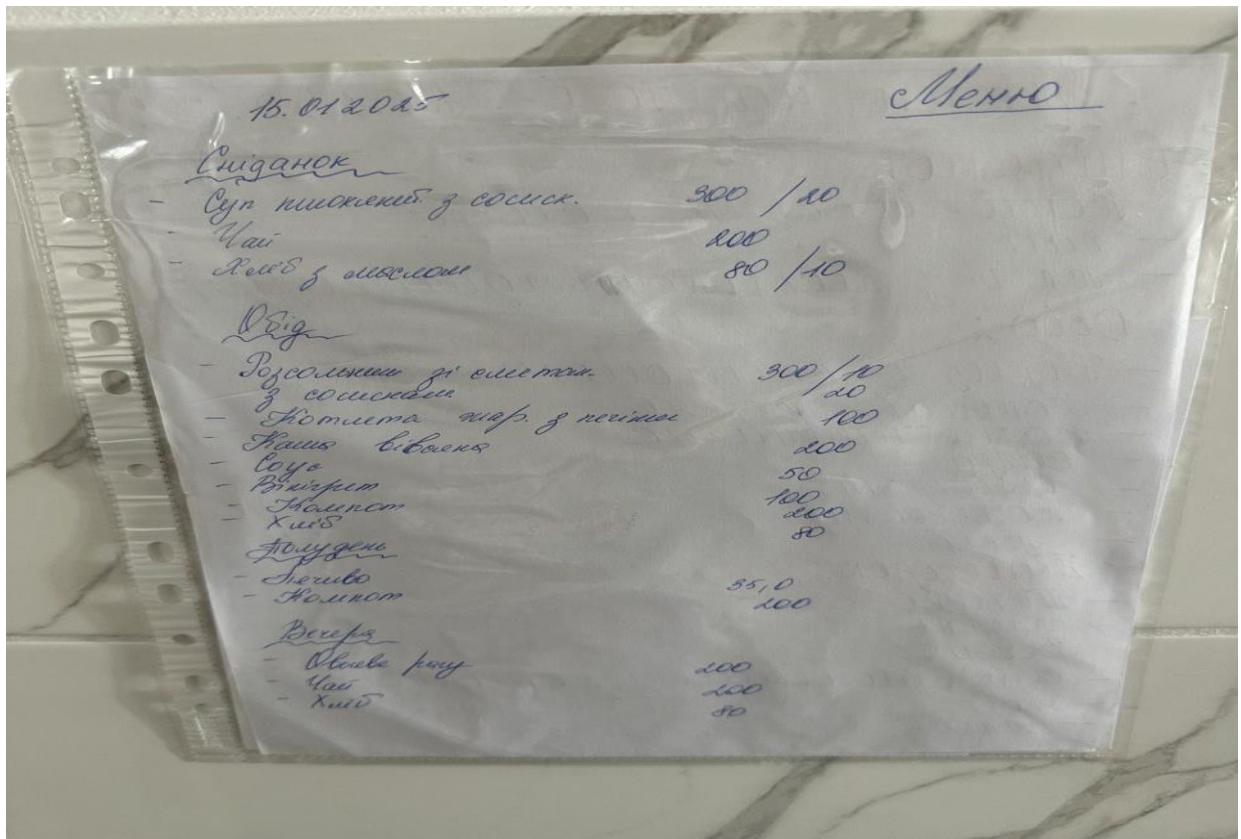 15.01 2025 Меню
Сніданок
- Суп пшоняний з сосиск. 300 / 20
- Чай 200
- Хліб з маслом 80 / 10
Обід
- Розсольник зі сметан. 300 / 10
з сосисками 20
- Котлета жар. з печінки 100
- Каша вівсяна 200
- Соус 50
- Вінігрет 100
- Компот 200
- Хліб 80
Полудень
- Печиво 35,0
- Компот 200
Вечеря
- Овочеве рагу 200
- Чай 200
- Хліб 80